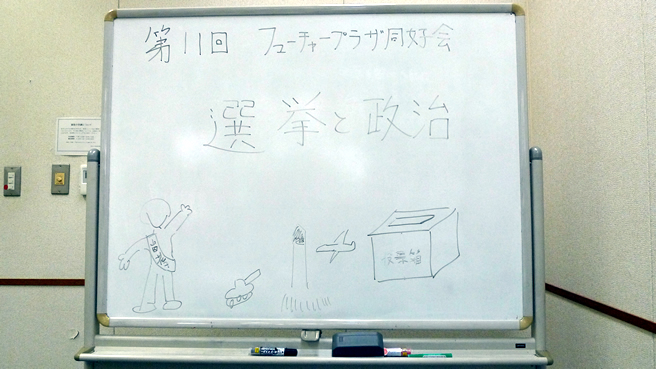 第11回 フューチャープラザ同好会
選挙と政治
投票箱